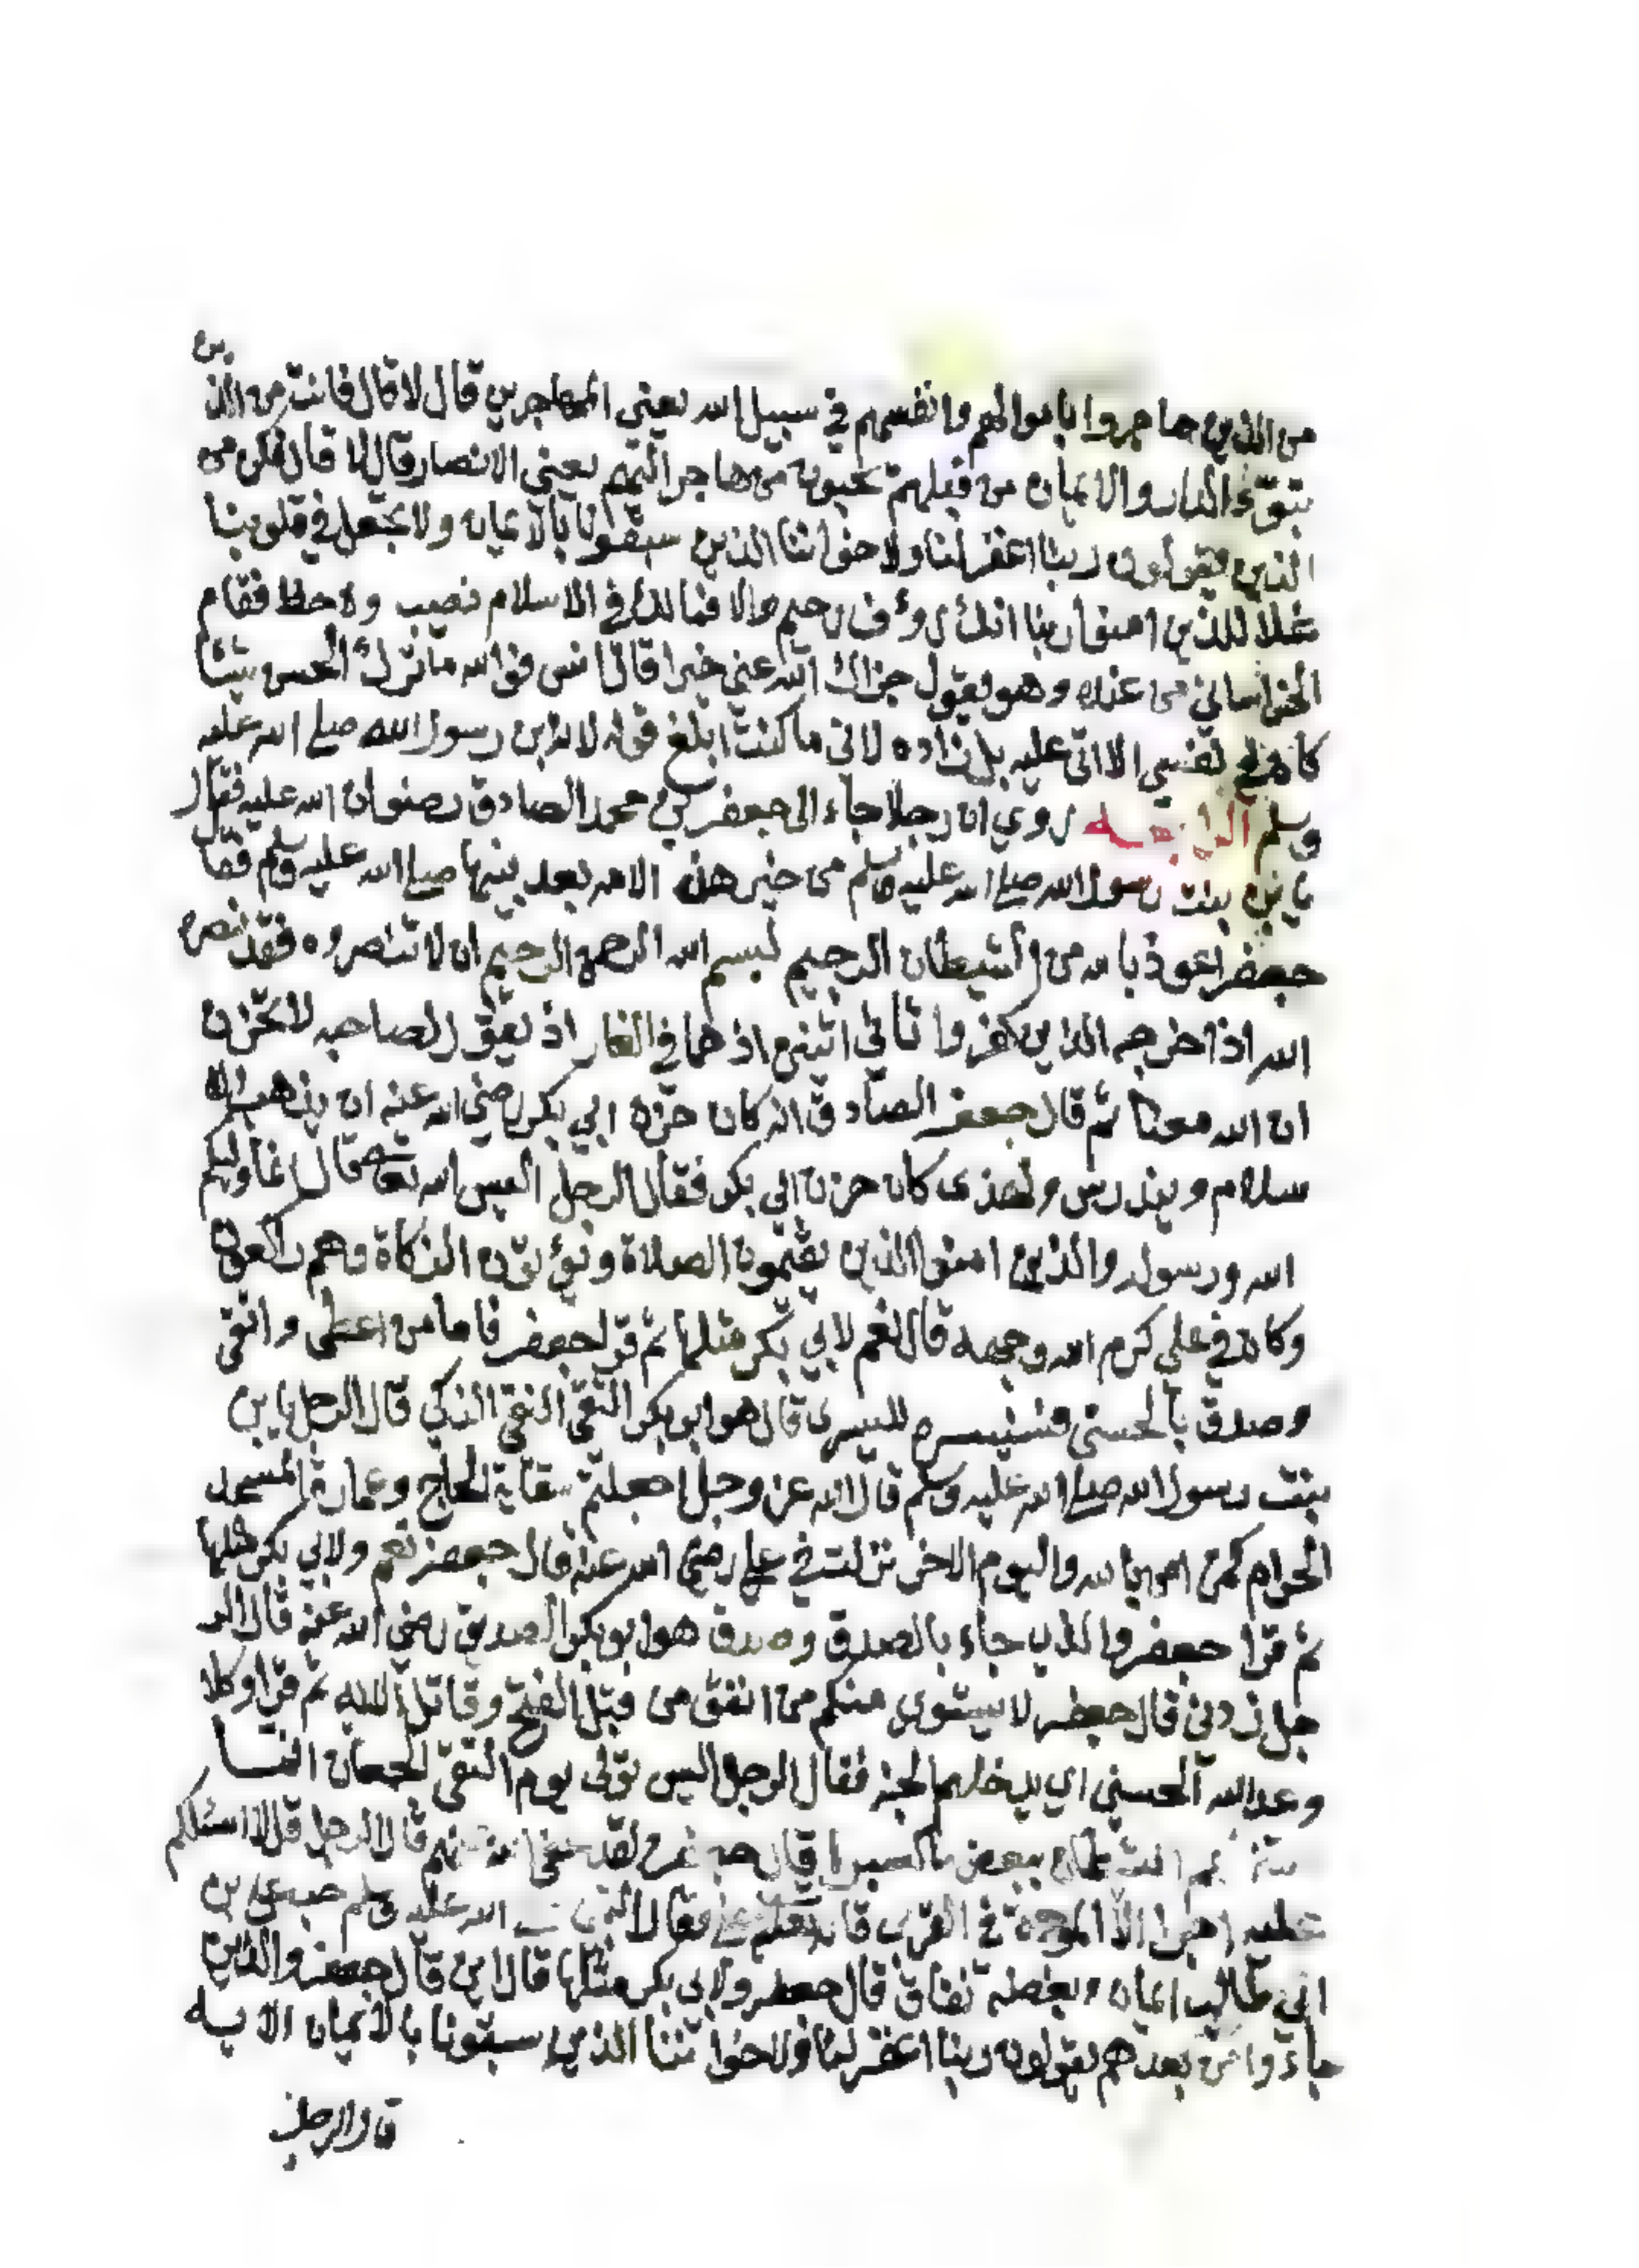 من الذين هاجروا باموالهم وانفسهم في سبيل الله يعني المهاجرين قال لا قال فانت من الذين
تبوؤ الدار والايمان من قبلهم يحبون من هاجر اليهم يعني الانصار قال لا قال فكن من
الذين يقولون ربنا اغفر لنا ولاخواننا الذين سبقونا بالايمان ولا تجعل في قلوبنا
غلا للذين امنوا ربنا انك رؤف رحيم والا فما لك في الاسلام نصيب ولا حظ فقام
الخراساني من عنده وهو يقول جزاك الله عني خيرا قال انس فوالله ما ترك الحسن شيئا
كان في نفسي الا اتى عليه بل زاده لاني ما كنت ابلغ قوله لابن رسول الله صلى الله عليه
وسلم روي ان رجلا جاء الى جعفر بن محمد الصادق رضوان الله عليه فقال
يا بن بنت رسول الله صلى الله عليه وسلم من خير هذه الامه بعد نبيها صلى الله عليه وسلم فقال
جعفر اعوذ بالله من الشيطان الرجيم بسم الله الرحمن الرحيم ان لا تنصروه فقد نصره
الله اذا اخرجه الذين كفروا ثاني اثنين اذ هما في الغار اذ يقول لصاحبه لا تحزن
ان الله معنا ثم قال جعفر الصادق انه كان حزن ابي بكر رضي الله عنه ان يذهب الا
سلام ويندرس ولهذى كان حزن ابي بكر فقال الرجل اليس الله تعالى قال انما وليكم
الله ورسوله والذين امنوا الذين يقيمون الصلاة ويؤتون الزكاة وهم راكعون
وكانه في علي كرم الله وجهه قال نعم لابي بكر مثلها ثم قرا جعفر فاما من اعطى واتقى
وصدق بالحسنى فسنيسره لليسرى قال هو ابو بكر التقي النقي الزكي قال الرجل يا بن
بنت رسول الله صلى الله عليه وسلم قال الله عز وجل اجعلتم سقاية الحاج وعمارة المسجد
الحرام كمن امن بالله واليوم الاخر نزلت في علي رضي الله عنه قال جعفر نعم ولابي بكر مثلها
ثم قرا جعفر والذي جاء بالصدق وصدق هو ابو بكر الصديق رضي الله عنه قال الر
جل زدني قال جعفر لا يستوي منكم من انفق من قبل الفتح وقاتل ثم قرا وكلا
وعد الله الحسنى اي يدخلهم الجنة فقال الرجل اليس تولى يوم التقى الجمعان انما
ببعض ما كسبوا قال لقد عفا الله عنهم قال الرجل قل لا اسئلكم
عليه اجرا الا المودة في القربى الله عليه وسلم حب علي بن
ابي طالب ايمان وبغضه نفاق قال جعفر ولابي بكر مثلها قال اين قال جعفر والذين
جاءوا من بعدهم يقولون ربنا اغفر لنا ولاخواننا الذين سبقونا بالايمان الايه
قال الرجل